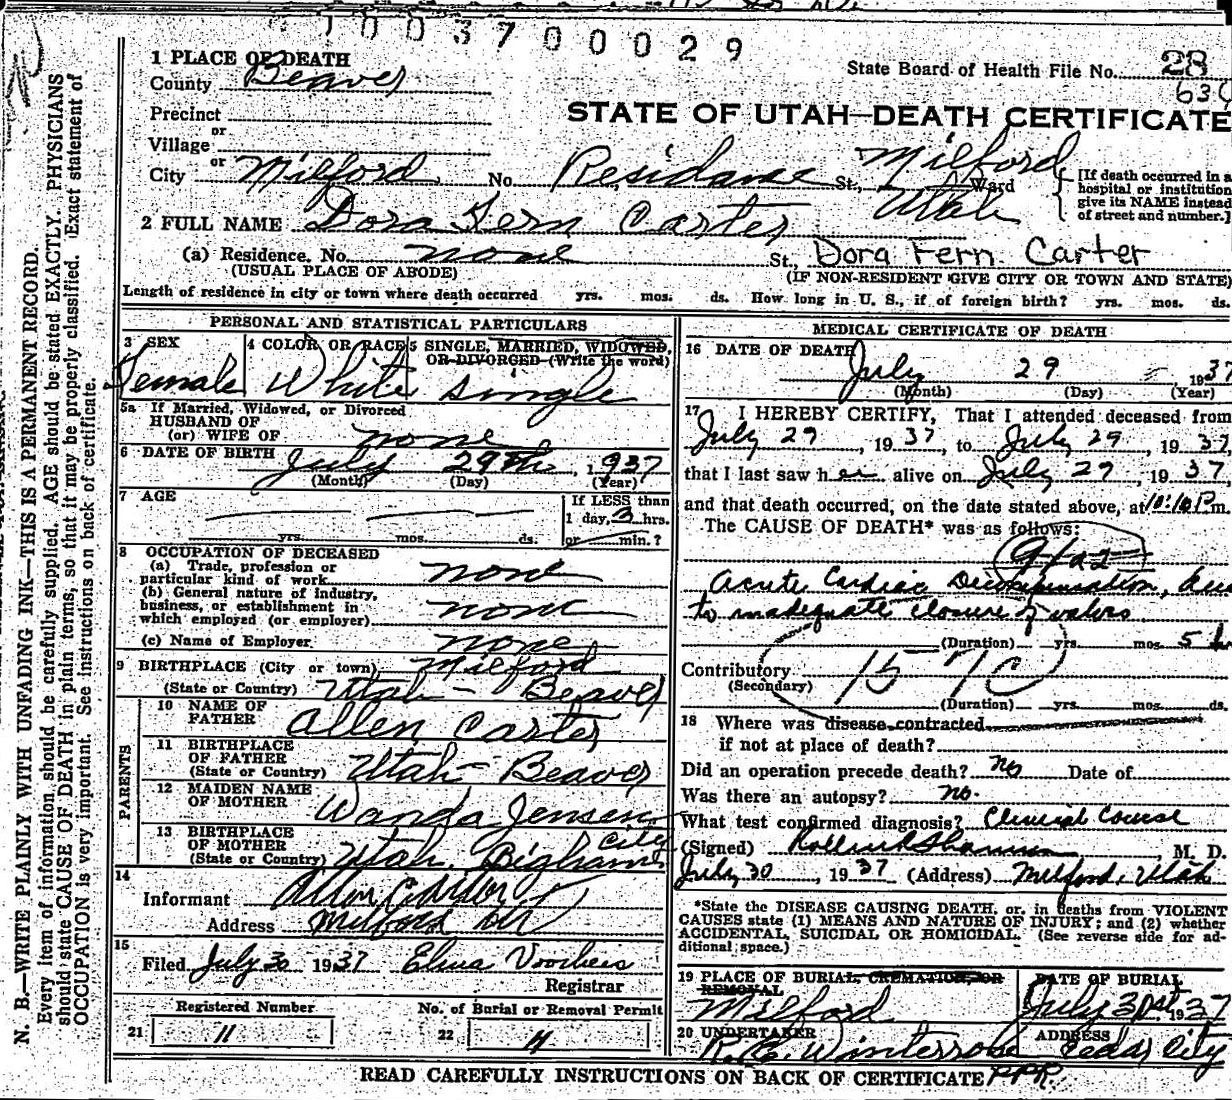 1003700029
1 PLACE OF DEATH
County Beaver
State Board of Health File No. 28
STATE OF UTAH—DEATH CERTIFICATE
Precinct
or
Village
or
City Milford No. Residance St., Ward Milford Utah
[If death occurred in a hospital or institution give its NAME instead of street and number.]
2 FULL NAME Dora Fern Carter
(a) Residence. No. none St., Dora Fern Carter
(USUAL PLACE OF ABODE) (IF NON-RESIDENT GIVE CITY OR TOWN AND STATE)
Length of residence in city or town where death occurred yrs. mos. ds. How long in U. S., if of foreign birth? yrs. mos. ds.
PERSONAL AND STATISTICAL PARTICULARS
3 SEX 4 COLOR OR RACE 5 SINGLE, MARRIED, WIDOWED, OR DIVORCED (Write the word)
Female White single
5a If Married, Widowed, or Divorced
HUSBAND OF
(or) WIFE OF none
6 DATE OF BIRTH July 29th, 1937
(Month) (Day) (Year)
7 AGE If LESS than
1 day, 3 hrs.
yrs. mos. ds. or min.?
8 OCCUPATION OF DECEASED
(a) Trade, profession or
particular kind of work none
(b) General nature of industry,
business, or establishment in
which employed (or employer) none
(c) Name of Employer none
9 BIRTHPLACE (City or town) Milford
(State or Country) Utah - Beaver
PARENTS
10 NAME OF
FATHER Allen Carter
11 BIRTHPLACE
OF FATHER
(State or Country) Utah - Beaver
12 MAIDEN NAME
OF MOTHER Wanda Jensen
13 BIRTHPLACE
OF MOTHER
(State or Country) Utah, Bigham City
14
Informant Allen Carter
Address Milford Ut
15
Filed July 30 1937 Elma Voorhees
Registrar
Registered Number No. of Burial or Removal Permit
21 11 22 11
MEDICAL CERTIFICATE OF DEATH
16 DATE OF DEATH
July 29 1937
(Month) (Day) (Year)
17 I HEREBY CERTIFY, That I attended deceased from
July 29, 1937, to July 29, 1937,
that I last saw her alive on July 29, 1937,
and that death occurred, on the date stated above, at 10:10 P.m.
The CAUSE OF DEATH* was as follows:
Acute Cardiac Decompensation, due
to inadequate closure of valves
(Duration) yrs. mos. 5
Contributory 157C
(Secondary)
(Duration) yrs. mos. ds.
18 Where was disease contracted
if not at place of death?
Did an operation precede death? No Date of
Was there an autopsy? no.
What test confirmed diagnosis? Clinical Course
(Signed) M. D.
July 30, 1937 (Address) Milford, Utah
*State the DISEASE CAUSING DEATH, or, in deaths from VIOLENT
CAUSES state (1) MEANS AND NATURE OF INJURY; and (2) whether
ACCIDENTAL, SUICIDAL OR HOMICIDAL. (See reverse side for ad-
ditional space.)
19 PLACE OF BURIAL, CREMATION, OR REMOVAL DATE OF BURIAL
Milford July 31st 1937
20 UNDERTAKER ADDRESS
Cedar City
READ CAREFULLY INSTRUCTIONS ON BACK OF CERTIFICATE
N. B.—WRITE PLAINLY WITH UNFADING INK—THIS IS A PERMANENT RECORD.
Every item of information should be carefully supplied. AGE should be stated EXACTLY. PHYSICIANS
should state CAUSE OF DEATH in plain terms, so that it may be properly classified. Exact statement of
OCCUPATION is very important. See instructions on back of certificate.